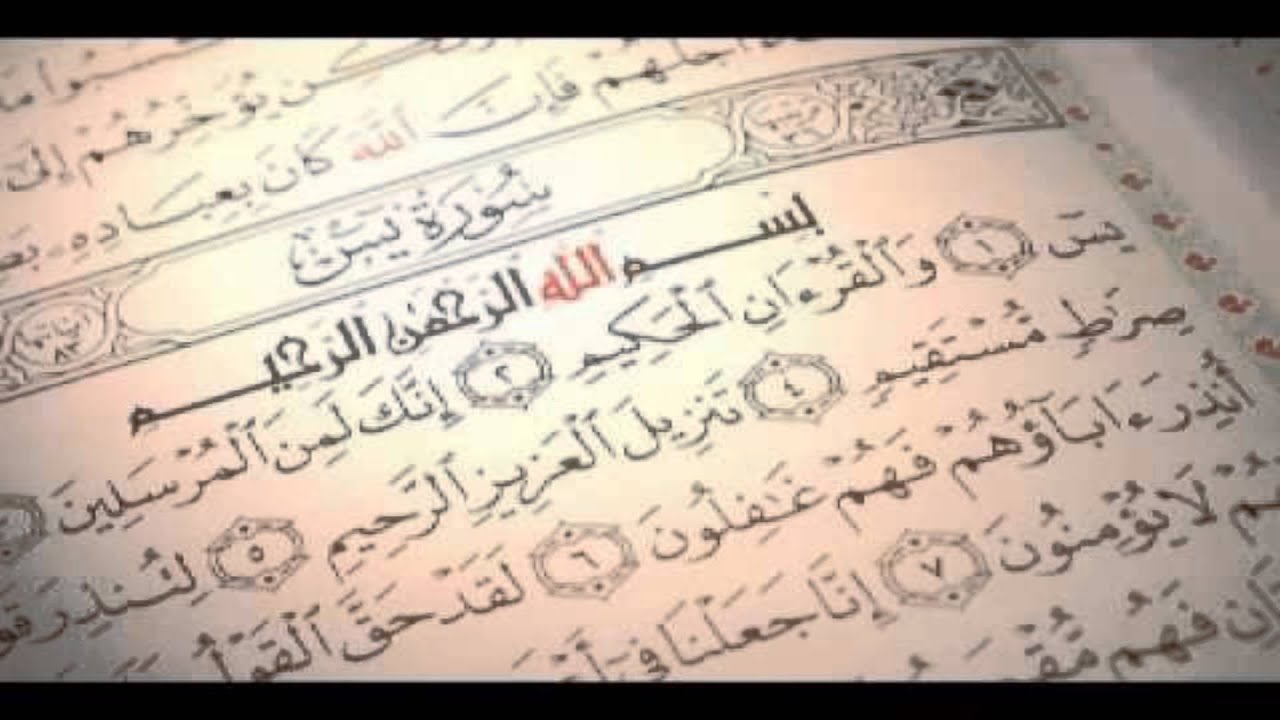 يُؤَخِّرُهُمْ إِلَىٰ
أَجَلُهُمْ فَإِنَّ ٱللَّهَ كَانَ بِعِبَادِهِۦ
سُورَةُ يسٓ
بِسْمِ اللَّهِ الرَّحْمَٰنِ الرَّحِيمِ
يسٓ ١ وَٱلْقُرْءَانِ ٱلْحَكِيمِ ٢ إِنَّكَ لَمِنَ ٱلْمُرْسَلِينَ
صِرَٰطٍ مُّسْتَقِيمٍ ٤ تَنزِيلَ ٱلْعَزِيزِ ٱلرَّحِيمِ ٥ لِتُنذِرَ
أُنذِرَ ءَابَآؤُهُمْ فَهُمْ غَٰفِلُونَ ٦ لَقَدْ حَقَّ ٱلْقَوْلُ
لَا يُؤْمِنُونَ ٧ إِنَّا جَعَلْنَا فِىٓ
فَهُم